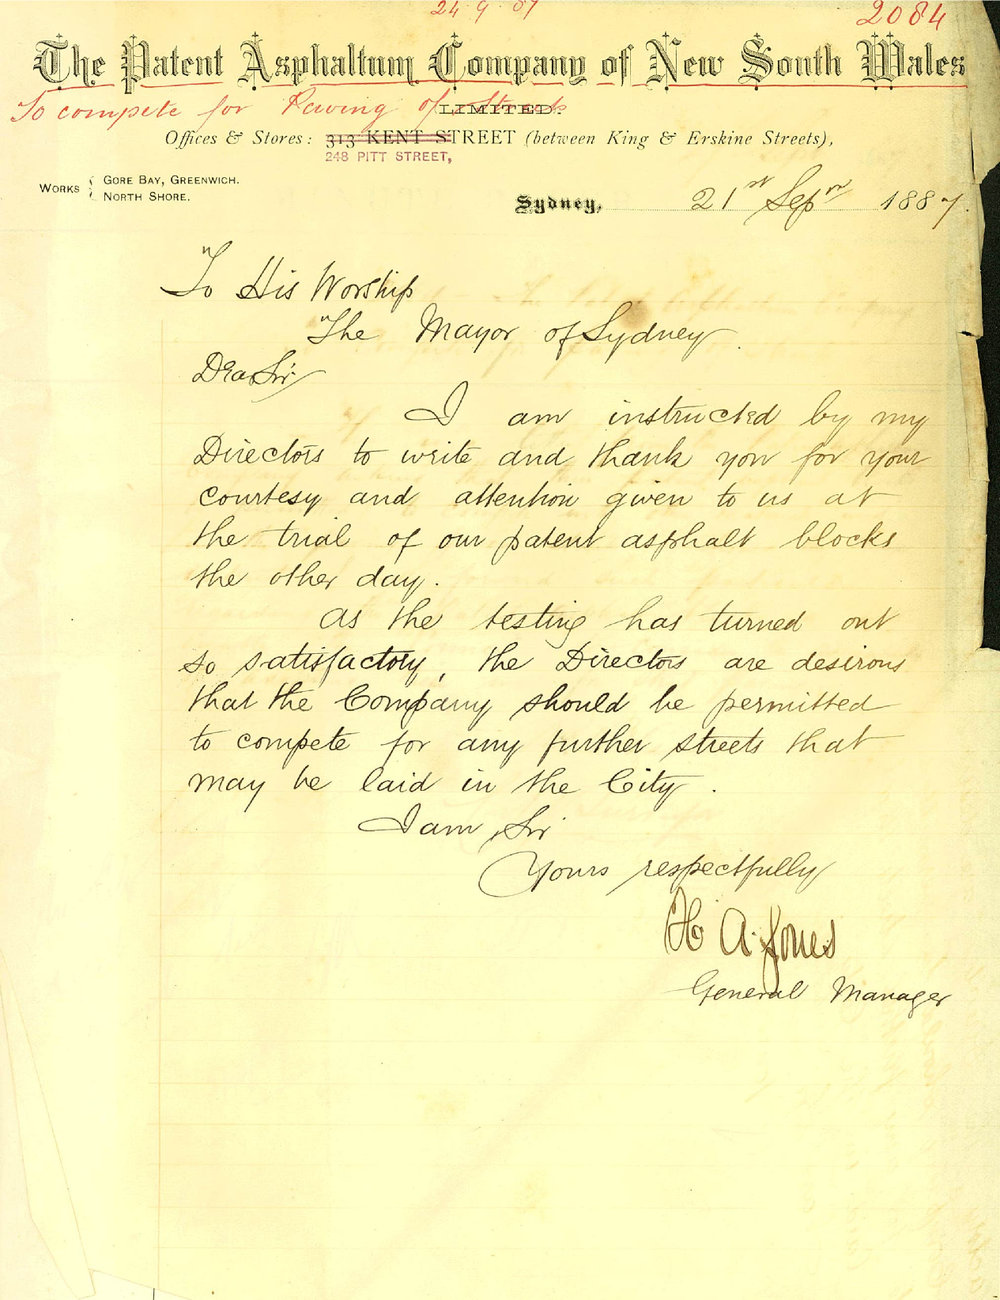 24.9.87
2084
The Patent Asphaltum Company of New South Wales
To compete for Paving of Streets
LIMITED.
Offices & Stores: 313 KENT STREET (between King & Erskine Streets),
248 PITT STREET,
WORKS { GORE BAY, GREENWICH.
NORTH SHORE.
Sydney, 21st Sepr 1887.
To His Worship
The Mayor of Sydney.
Dear Sir
I am instructed by my
Directors to write and thank you for your
courtesy and attention given to us at
the trial of our patent asphalt blocks
the other day.
As the testing has turned out
so satisfactory, the Directors are desirous
that the Company should be permitted
to compete for any further streets that
may be laid in the City.
I am, Sir
Yours respectfully
H A. Jones
General Manager